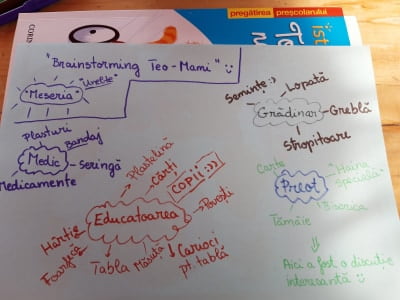 pregătirea preșcolarului
"Brainstorming Teo-Mami" :)
"Meseria"
"Unelte"
Semințe :)
Lopată
Grădinar
Greblă
Stropitoare
Plasturi
Bandaj
Medic
seringă
Medicamente
Plastelină
Cărți
COPII :))
Educatoarea
Povești
Hârtie
Foarfică
Tabla
Măsuță
Carioci
pt. tablă
Carte
"Haină
specială"
Preot
Biserica
Tămâie
Aici a fost o discuție
interesantă :)